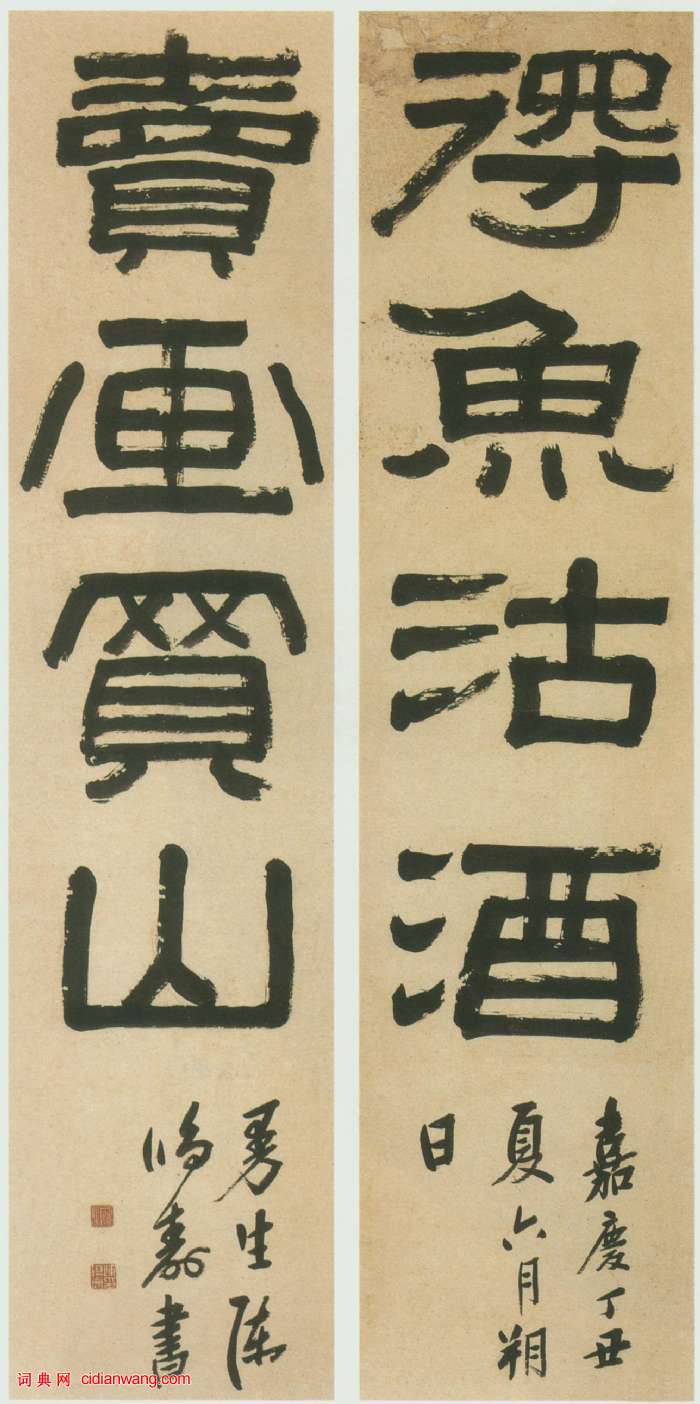 得魚沽酒
嘉慶丁丑
夏六月朔
日
賣画買山
曼生陳
鴻壽書
词典网 cidianwang.com